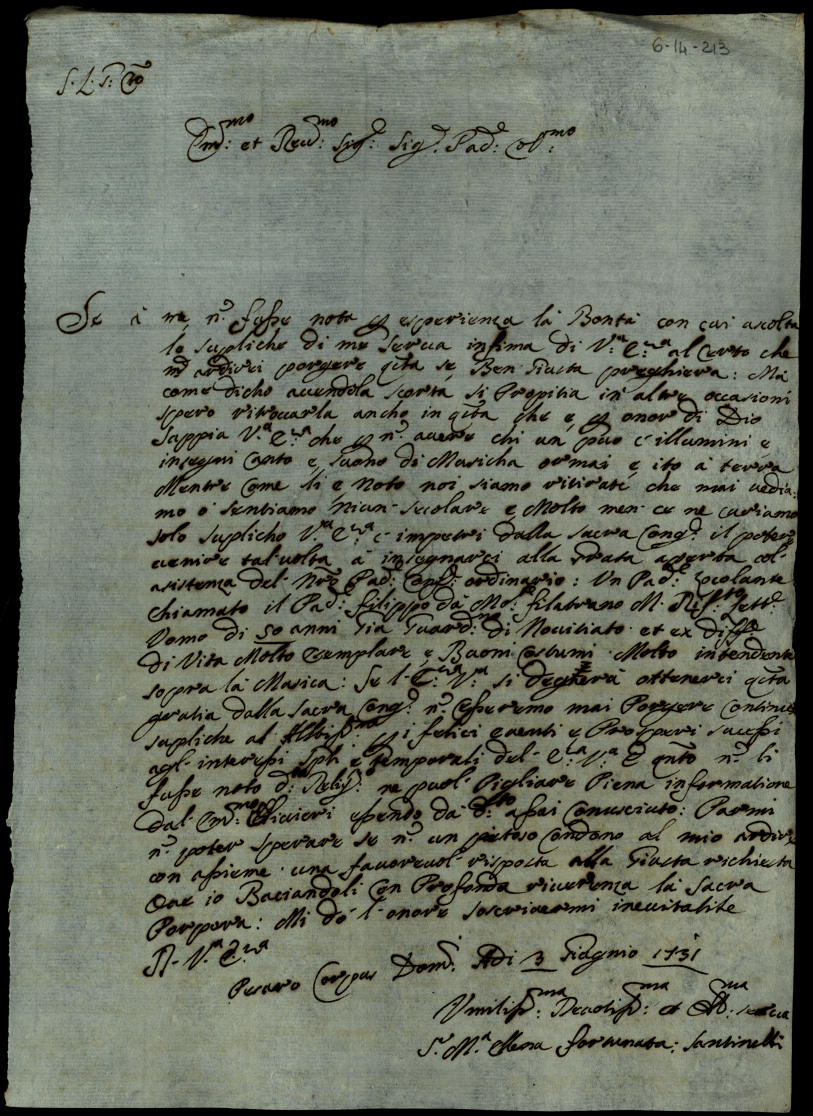 6-14-213
S. L. S: Cto
Emo: et Revmo: Sigr: Sigr. Pade: Colmo:
Se à me n.° fusse nota p esperienza la Bontà con cui ascolta
le supliche di me serva infima di V.ra E.nza al certo che
n° ardirei porgere qta se Ben Giusta preghiera: Mà
come dicho avendola scorta si Propitia in altre occasioni
spero ritrovarla ancho in qta che è p onor di Dio
Sappia V.ra E.nza che p n.° avere chi un può c'illumini è
insegni Canto è, suono di Musicha ormai è ito à terra
Mentre Come li è Noto noi siamo ritirate che mai vedia:
mo o sentiamo niun secolare è Molto men ce ne curiamo
solo suplicho V.ra E.nza c'impetri dalla sacra Congne il poter
venire tal'volta à insegnarci alla Grata aperta col'
asistenza del Nro Pad: Confre: ordinario: Un Pad.e zocolante
chiamato il Pad:e Filippo da Mo:te filatrano M. Rifto: Lette
Uomo di 50 anni Gia Guardno: di Novitiato et ex Diffre
di Vita Molto esemplare è Buoni Costumi Molto intendente
sopra la Musica: Se l'E.nza V.ra si degnerà ottenerci qta
gratia dalla sacra Congne n.° Cesseremo mai Porgere Continue
supliche al Altissmo p i felici eventi è Prosperi sucessi
agl'interessi Spli è temporali del' E.nza V.ra E qnto n.° li
fusse noto do: Religo: ne puol' Pigliare Piena informatione
dal Emo: Olivieri essendo da do: assai Conusciuto: Parmi
n.° poter sperare se n.° un pietoso Condono al mio ardire
con assieme una favorevol' risposta alla Giusta richiesta
Que io Baciandoli Con Profonda riverenza la Sacra
Porpora: Mi dò l'onore soscrivermi inevitabile
D. V.ra E.nza
Pesaro Corpus Domi: Adi 3 Giugnio 1731
Umilissma: Devotissma: et Obma: serva
Sr M.a Elena Fortunata: Santinelli